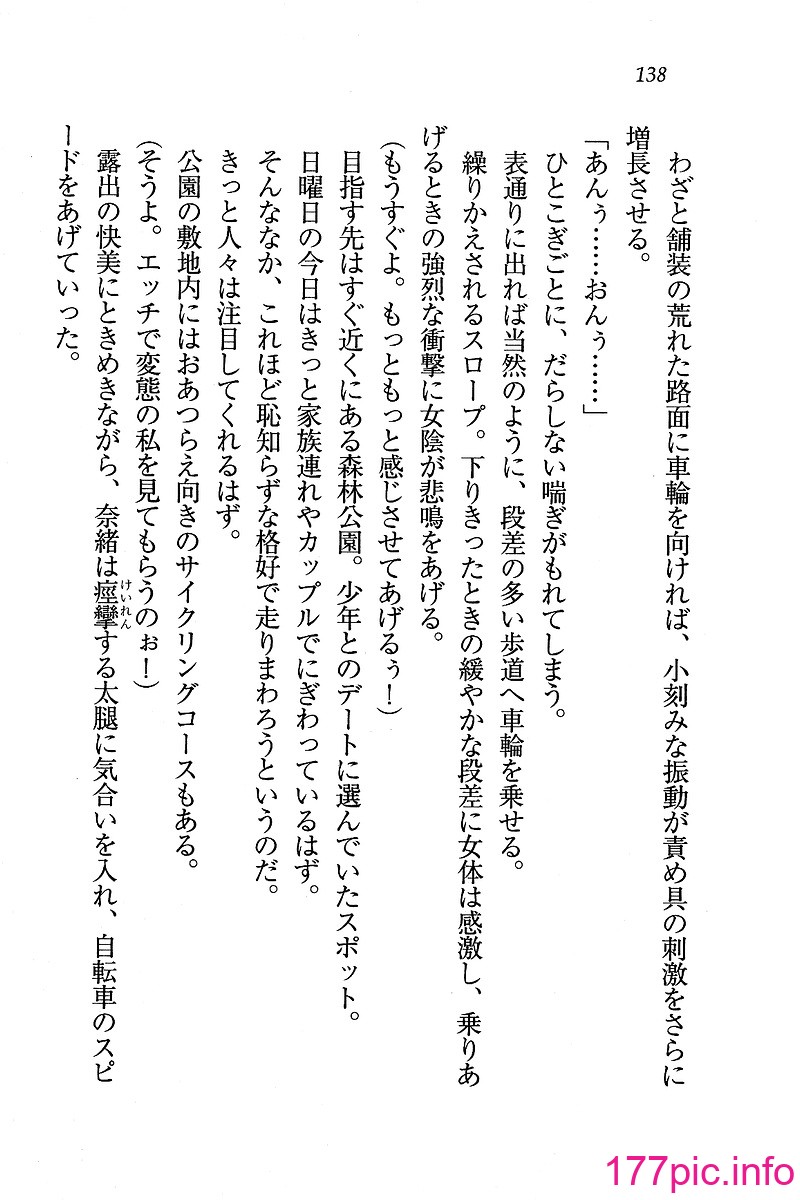 138
わざと舗装の荒れた路面に車輪を向ければ、小刻みな振動が責め具の刺激をさらに
増長させる。
「あんぅ……おんぅ……」
ひとこぎごとに、だらしない喘ぎがもれてしまう。
表通りに出れば当然のように、段差の多い歩道へ車輪を乗せる。
繰りかえされるスロープ。下りきったときの緩やかな段差に女体は感激し、乗りあ
げるときの強烈な衝撃に女陰が悲鳴をあげる。
(もうすぐよ。もっともっと感じさせてあげるぅ！)
目指す先はすぐ近くにある森林公園。少年とのデートに選んでいたスポット。
日曜日の今日はきっと家族連れやカップルでにぎわっているはず。
そんななか、これほど恥知らずな格好で走りまわろうというのだ。
きっと人々は注目してくれるはず。
公園の敷地内にはおあつらえ向きのサイクリングコースもある。
(そうよ。エッチで変態の私を見てもらうのぉ！)
露出の快美にときめきながら、奈緒は痙攣する太腿に気合いを入れ、自転車のスピ
けいれん
ードをあげていった。
177pic.info